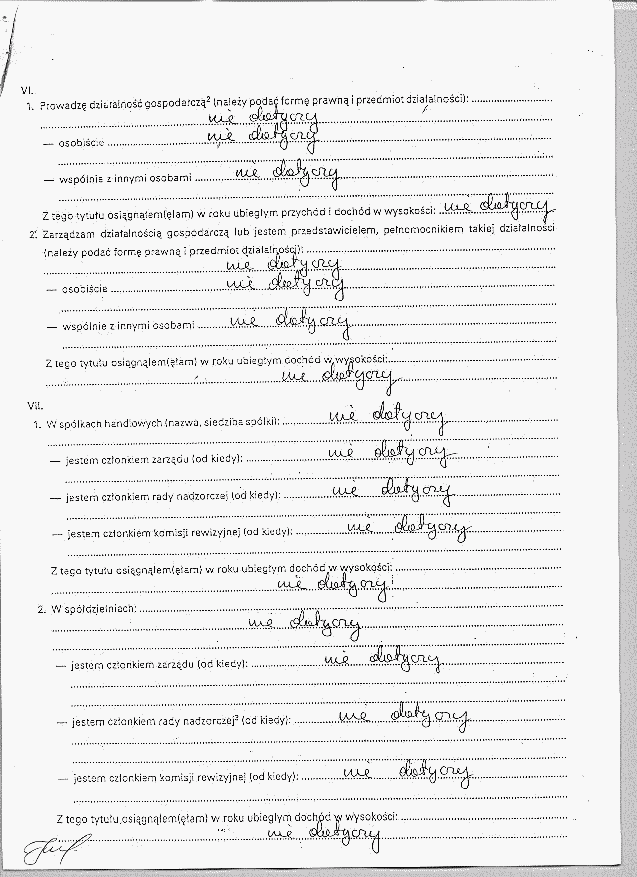 VI.
1. Prowadzę działalność gospodarczą² (należy podać formę prawną i przedmiot działalności):
nie dotyczy
— osobiście nie dotyczy
— wspólnie z innymi osobami nie dotyczy
Z tego tytułu osiągnąłem(ęłam) w roku ubiegłym przychód i dochód w wysokości: nie dotyczy
2. Zarządzam działalnością gospodarczą lub jestem przedstawicielem, pełnomocnikiem takiej działalności
(należy podać formę prawną i przedmiot działalności):
nie dotyczy
— osobiście nie dotyczy
— wspólnie z innymi osobami nie dotyczy
Z tego tytułu osiągnąłem(ęłam) w roku ubiegłym dochód w wysokości:
nie dotyczy
VII.
1. W spółkach handlowych (nazwa, siedziba spółki): nie dotyczy
— jestem członkiem zarządu (od kiedy): nie dotyczy
— jestem członkiem rady nadzorczej (od kiedy): nie dotyczy
— jestem członkiem komisji rewizyjnej (od kiedy): nie dotyczy
Z tego tytułu osiągnąłem(ęłam) w roku ubiegłym dochód w wysokości:
nie dotyczy
2. W spółdzielniach:
nie dotyczy
— jestem członkiem zarządu (od kiedy): nie dotyczy
— jestem członkiem rady nadzorczej³ (od kiedy): nie dotyczy
— jestem członkiem komisji rewizyjnej (od kiedy): nie dotyczy
Z tego tytułu osiągnąłem(ęłam) w roku ubiegłym dochód w wysokości:
nie dotyczy